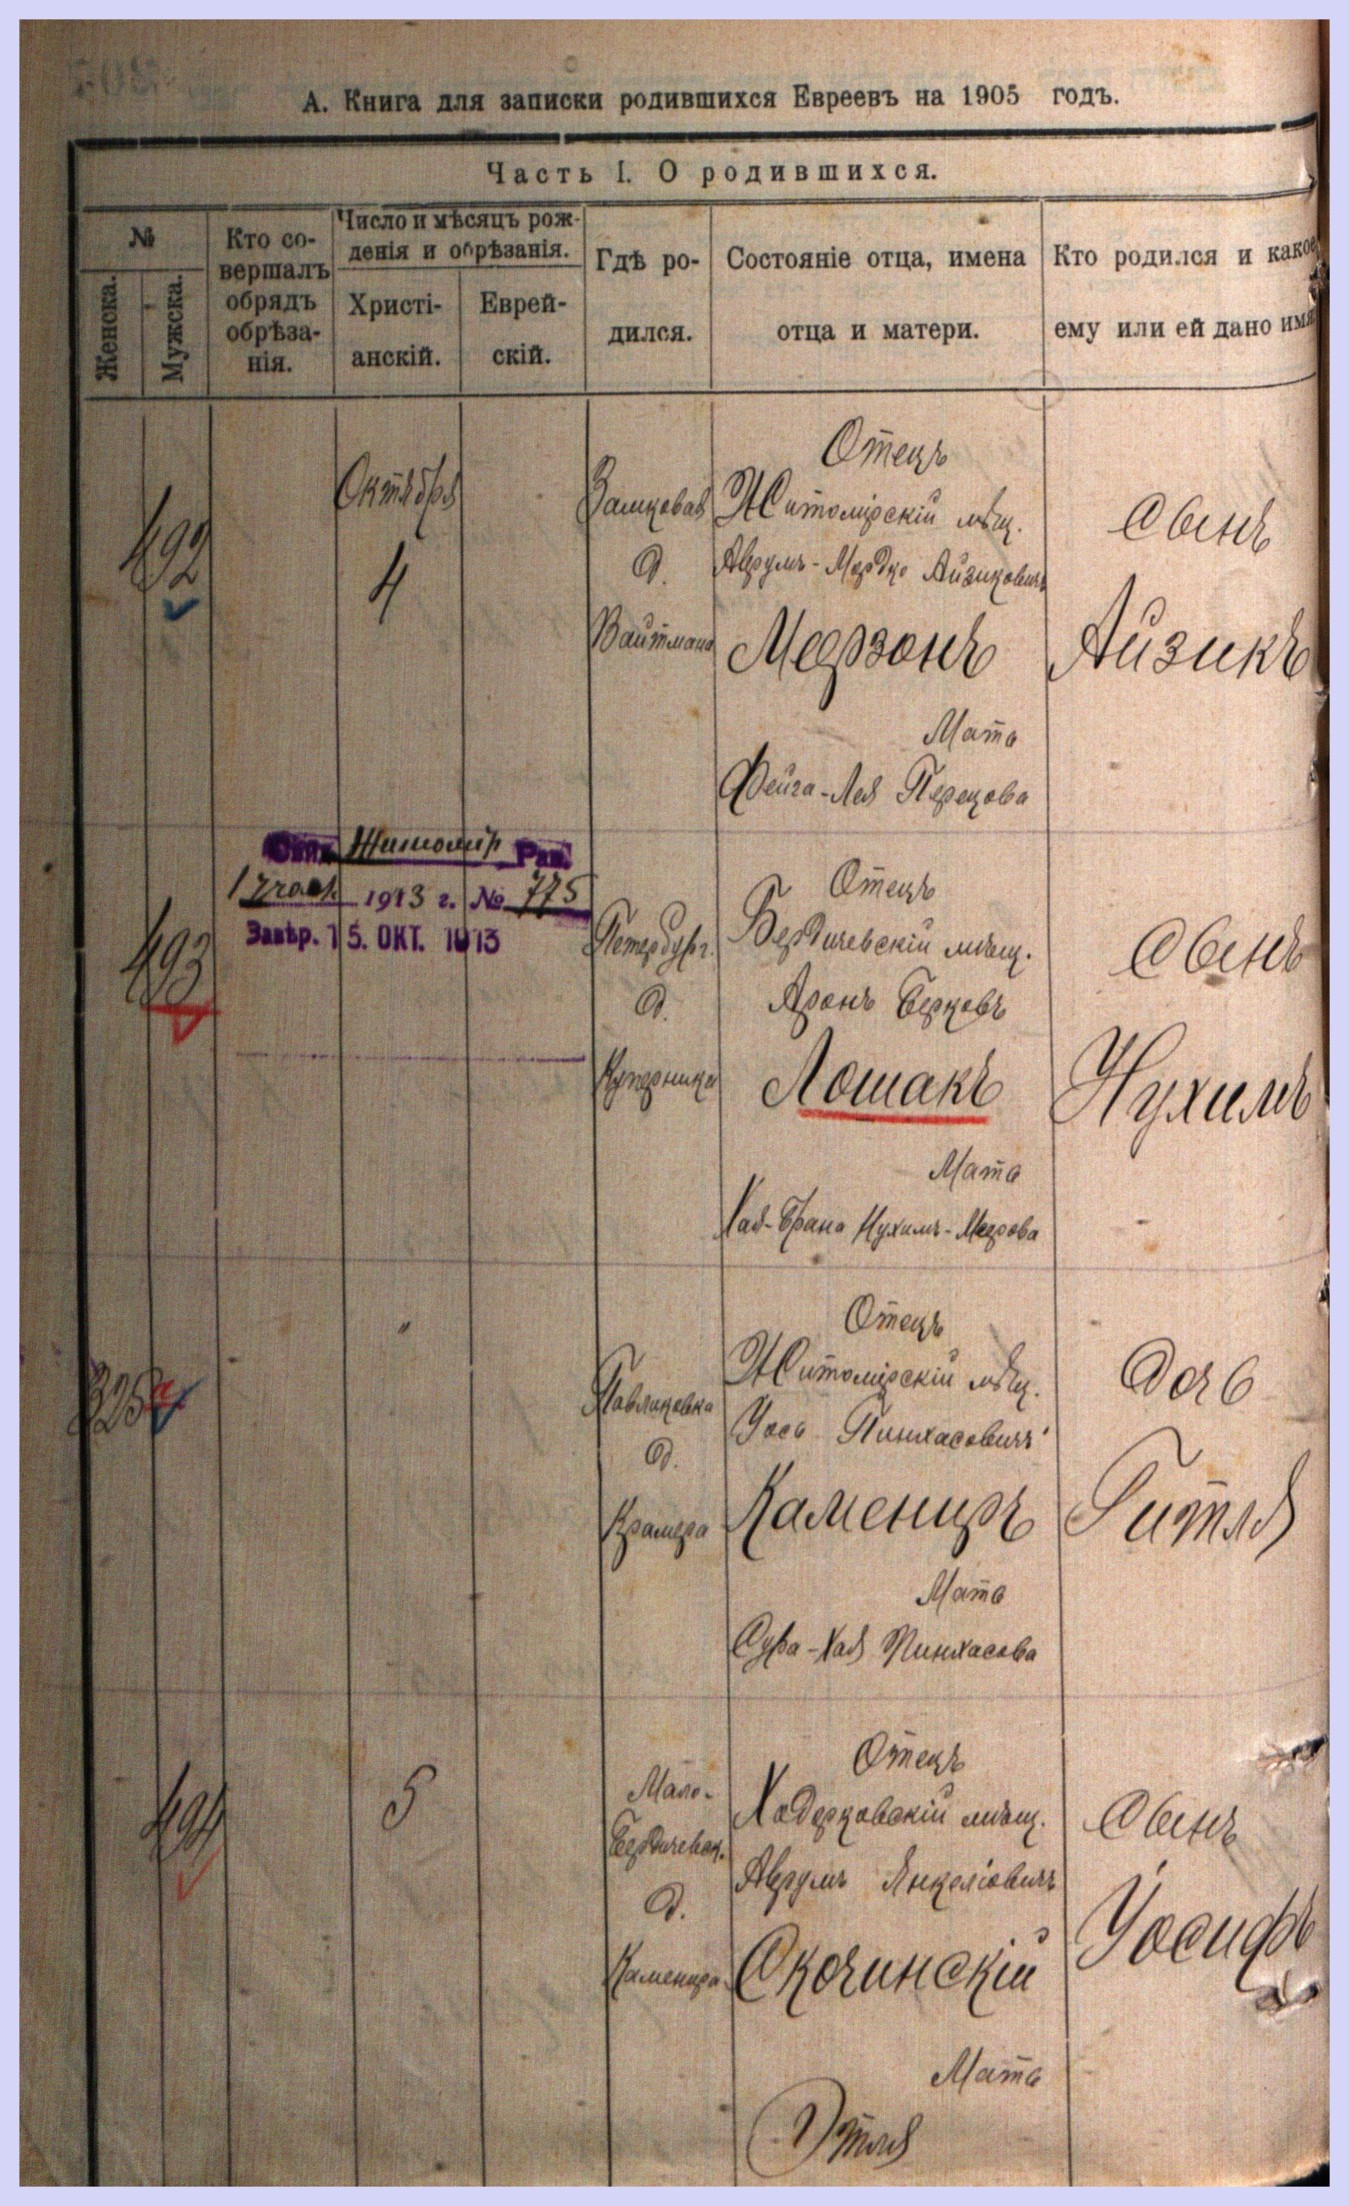 А. Книга для записки родившихся Евреевъ на 1905 годъ.
Часть I. О родившихся.
№
Женска.
Мужска.
Кто со-
вершалъ
обрядъ
обрѣза-
нія.
Число и мѣсяцъ рож-
денія и обрѣзанія.
Христі-
анскій.
Еврей-
скій.
Гдѣ ро-
дился.
Состояніе отца, имена
отца и матери.
Кто родился и какое
ему или ей дано имя
492
Октября
4
Замковая
д.
Вайтмана
Отецъ
Житомірскій мѣщ.
Аврумъ-Мордко Айзиковичъ
Меерзонъ
Мать
Фейга-Лея Перецова
Сынъ
Айзикъ
Житомір Рав.
1 участ. 1913 г. № 775
Завѣр. 15. ОКТ. 1913
493
Петербург.
д.
Куперника
Отецъ
Бердичевскій мѣщ.
Аронъ Берковъ
Лошакъ
Мать
Хая-Брана Нухимъ-Меерова
Сынъ
Нухимъ
325
"
Павликовка
д.
Крамера
Отецъ
Житомірскій мѣщ.
Іось Пинхасовичъ
Камениръ
Мать
Сура-Хая Пинхасова
Дочь
Гитля
494
5
Мало-
Бердичевск.
д.
Каменира
Отецъ
Ходорковскій мѣщ.
Аврумъ Янкеліовичъ
Скочинскій
Мать
Этля
Сынъ
Іосифъ